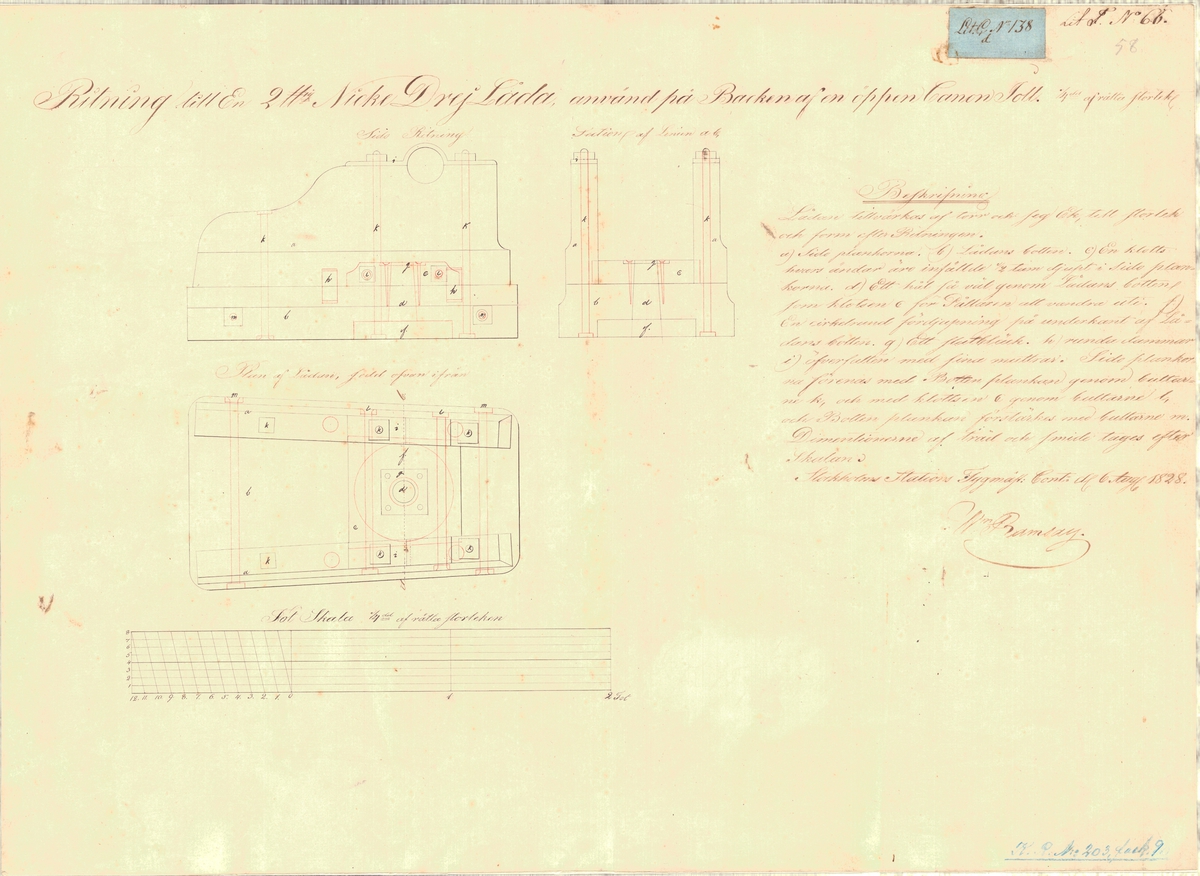 Litt. P. N° 138
d
Litt P. N° 66.
58
Ritning till En 2 ttig Nicke Drej Låda, använd på Backen af en öppen Canon Joll. 1/4 del af rätta storleken
Side Ritning
Section, af Linien a b,
Plan af Lådan, sedd ofvan ifrån
Beskrifning
Lådan tillvärkas af torr och seg Ek, till storlek
och form efter Ritningen.
a) Side plankorna. b) Lådans botten. c) En klotts
hvars ändar äro infällde 2 tum djupt i side plan-
korna. d) Ett hål så väl genom Lådans botten
som klotsen c för Pivoten att vandra uti. f)
En cirkelrund fördjupning på underkant af Lå-
dans botten. g) Ett släthbläck. h) runda dammar
i) öfverfallen med sina muttrar. Side plankor
na förenas med Botten plankan genom bultar
ne k, och med klottsen c genom bultarne l,
och Botten plankan förstärkes med bultarne m.
Dimentionerne af träd och smide tages efter
Skalan.
Stockholms Stations Tygmäst: Cont: d 6 Aug 1828.
Wm Ramsay.
Fot Skala 1/4 del af rätta storleken
8
7
6
5
4
3
2
1
12 11 10 9 8 7 6 5 4 3 2 1 0 1 2 Fot
K. R. Nr 203, fack 9